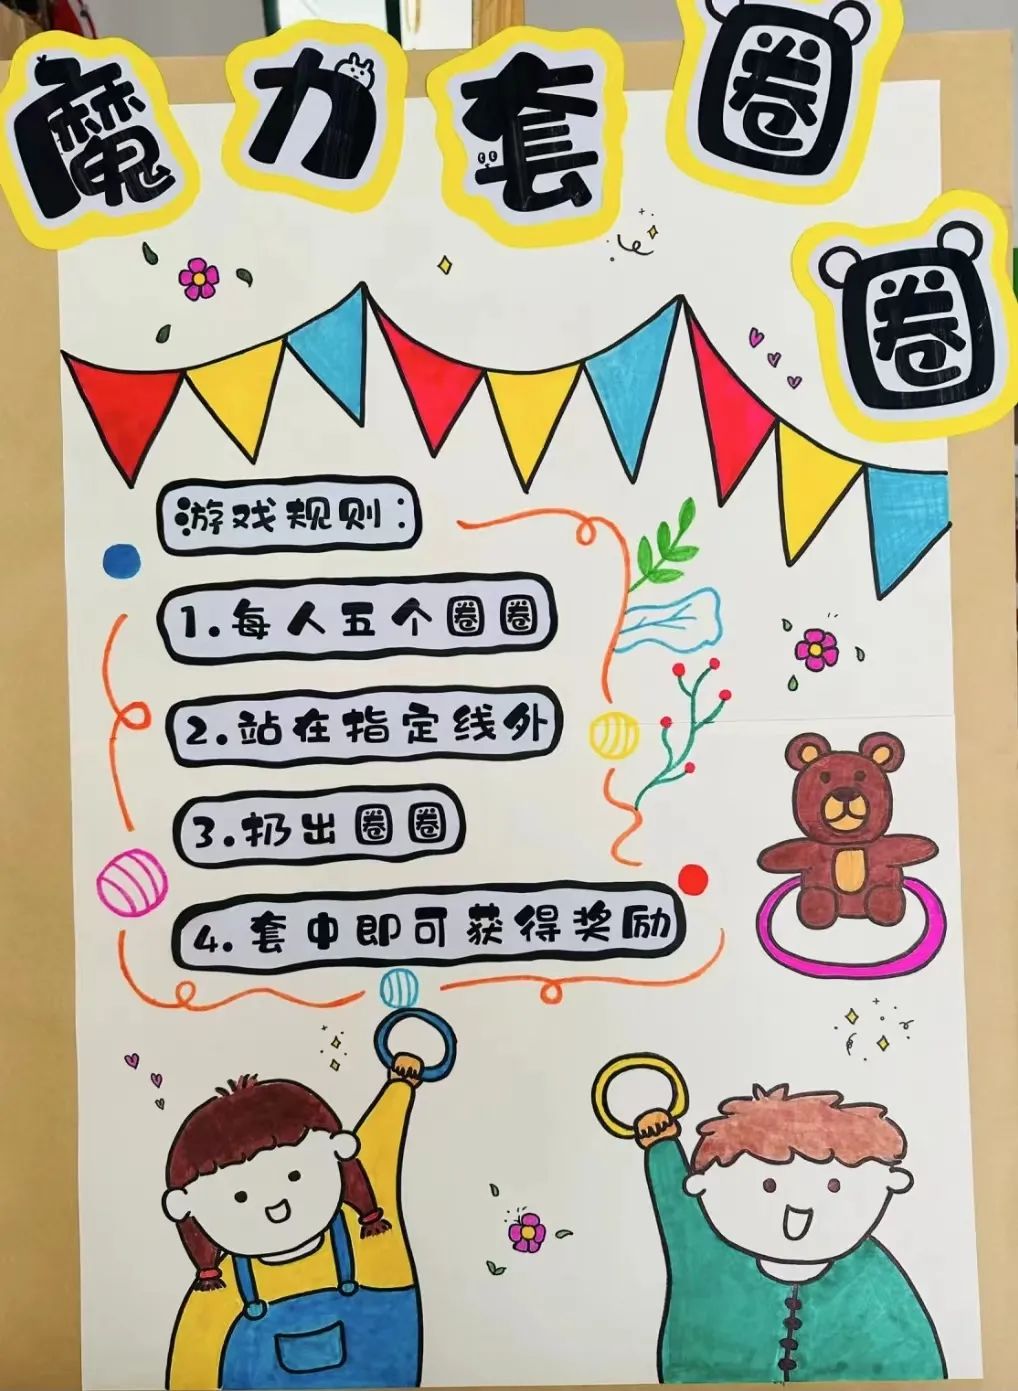 魔力套圈圈
游戏规则:
1.每人五个圈圈
2.站在指定线外
3.扔出圈圈
4.套中即可获得奖励